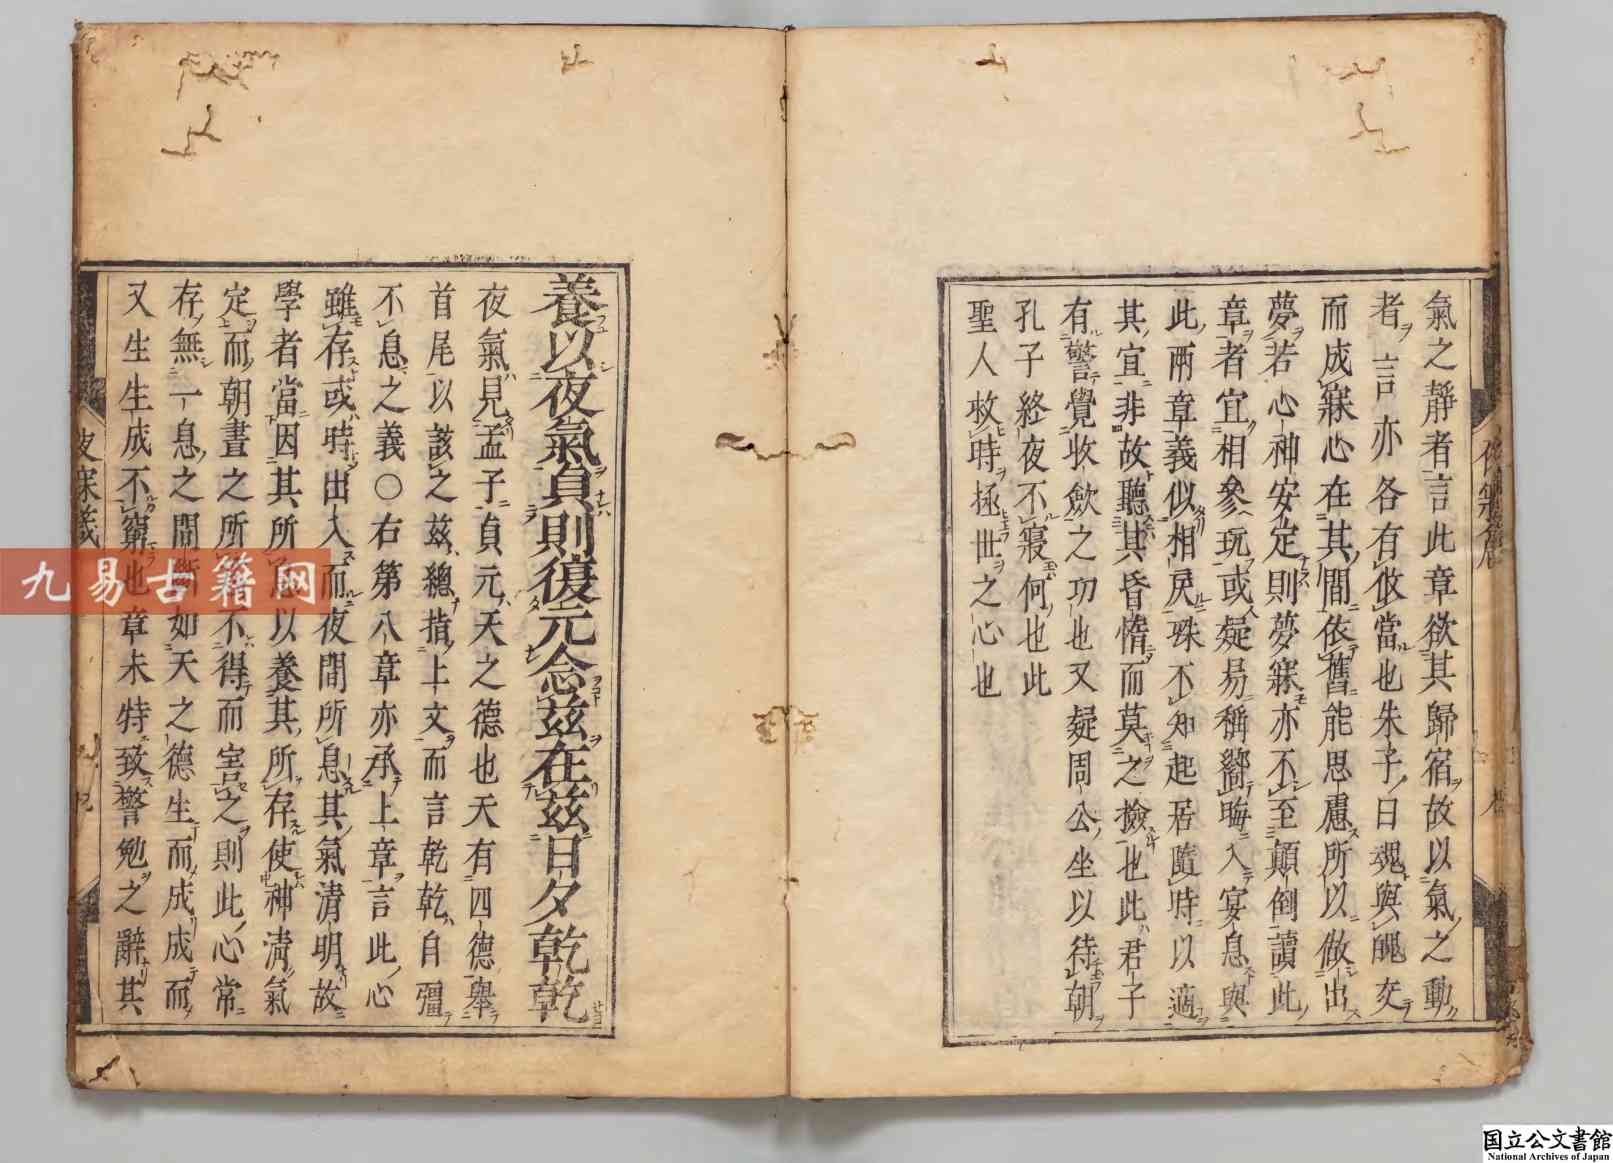 氣之靜者言此章欲其歸宿故以氣之動
者言亦各有攸當也朱子曰魂與魄交
而成寐心在其間依舊能思慮所以做出
夢若心神安定則夢寐亦不至顛倒讀此
章者宜相參玩或疑易稱嚮晦入宴息與
此兩章義似相戾殊不知起居隨時以適
其宜非故聽其昏惰而莫之撿也此君子
有警覺收斂之功也又疑周公坐以待朝
孔子終夜不寢何也此
聖人救時拯世之心也
養以夜氣貞則復元念茲在茲日夕乾乾
夜氣見孟子貞元天之德也天有四德舉
首尾以該之茲總指上文而言乾乾自彊
不息之義○右第八章亦承上章言此心
雖存或時出入而夜間所息其氣清明故
學者當因其所息以養其所存使神清氣
定而朝晝之所不得而害之則此心常
存無一息之間斷如天之德生而成成而
又生生成不窮也章末特致警勉之辭其
夜寐箴
九易古籍网
国立公文書館
National Archives of Japan